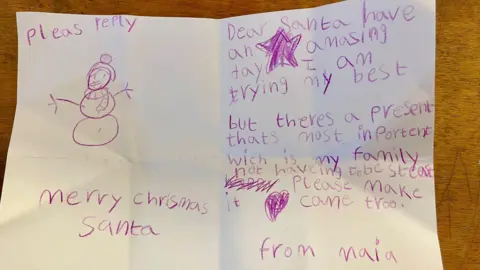 pleas reply
merry chrismas
santa
Dear Santa have
an amazing
day I am
trying my best
but theres a present
thats most inportent
wich is my family
not haveing to be stessd
Please make
it came troo.
from naia